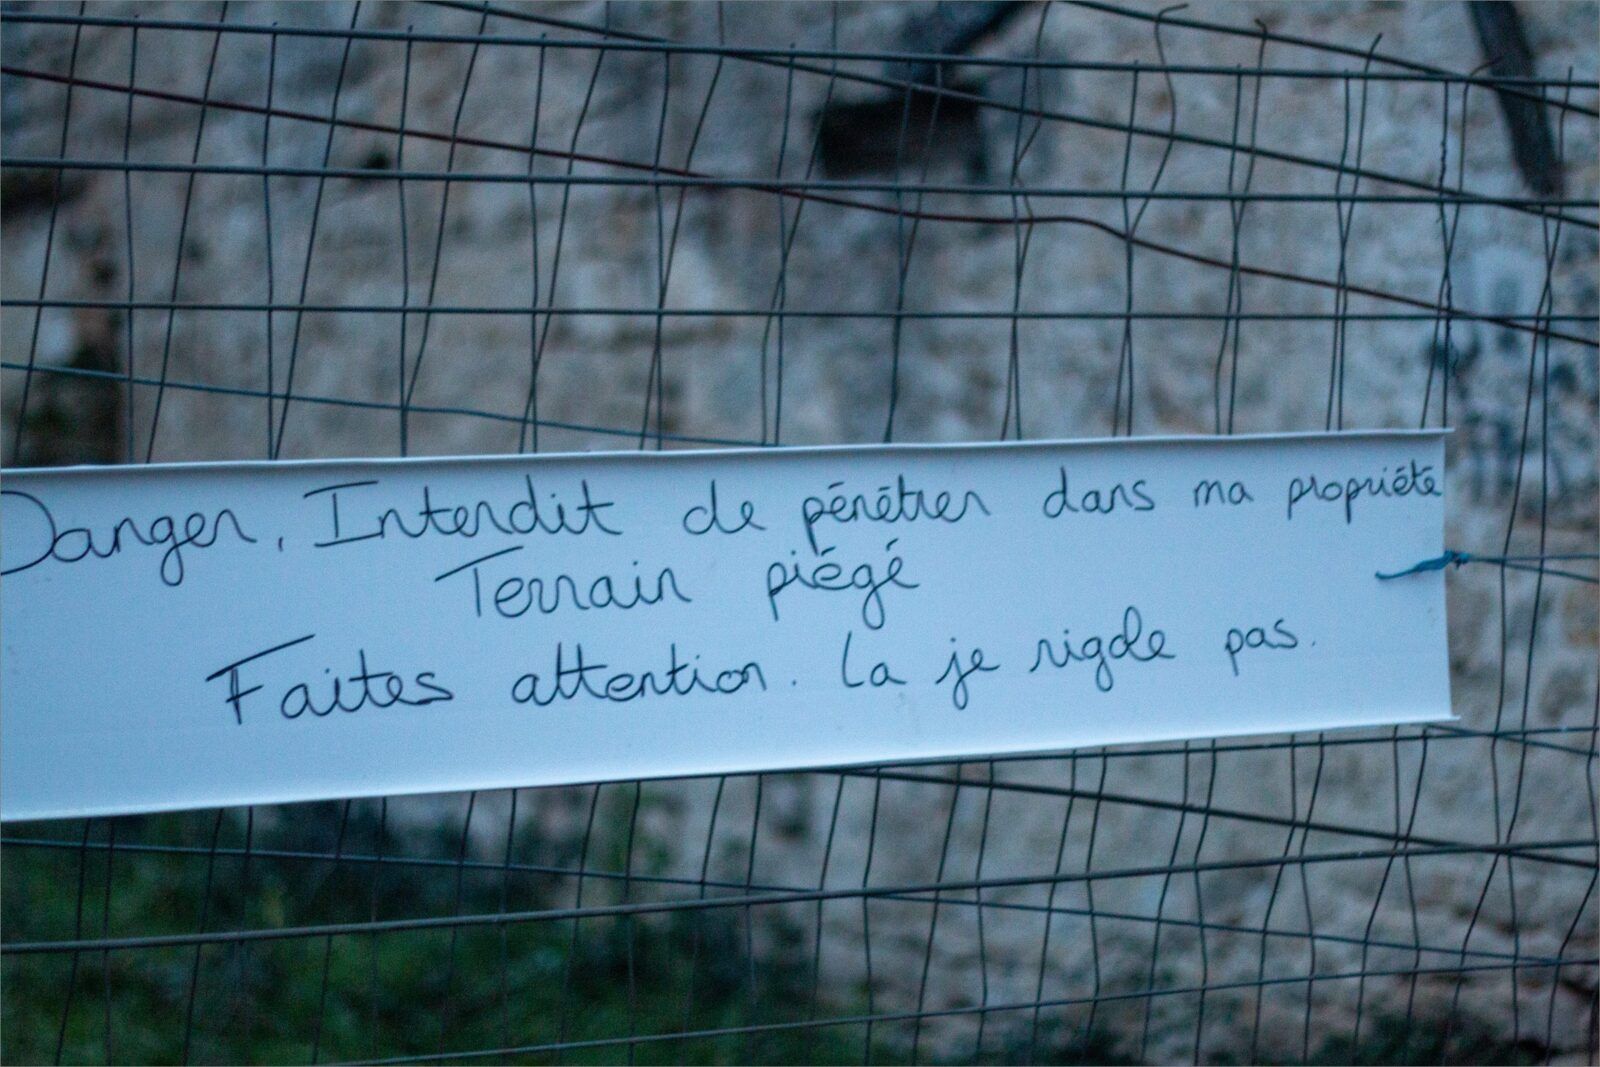 Danger, Interdit de pénétrer dans ma propriété
Terrain piégé
Faites attention. La je rigole pas.